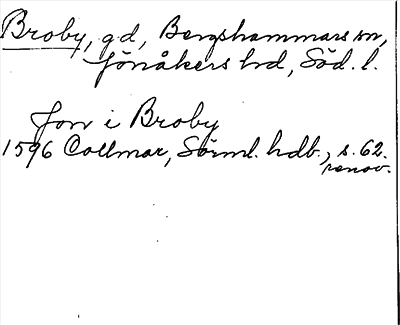 Broby, gd, Bergshammars sn,
Jönåkers hd, Söd. l.
Jon i Broby
1596 Collmar, Sörml. hdb., s. 62.
renov.